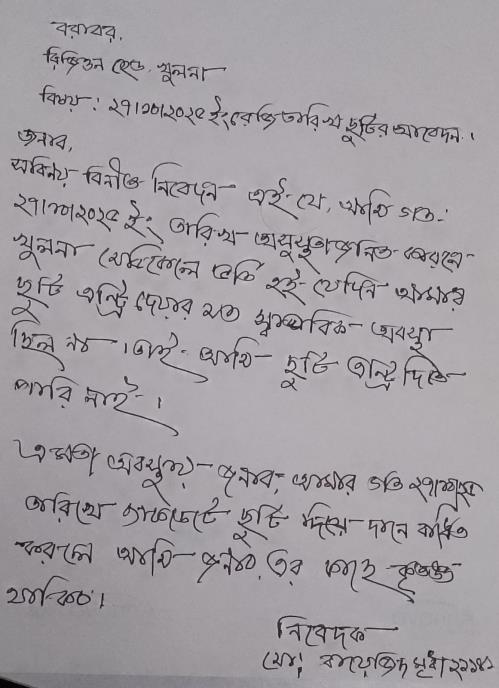 বরাবর,
রিজিওন হেড, খুলনা
বিষয়: ২৭।১০।২০২৫ ইং রোজ তারিখ ছুটির আবেদন।
জনাব,
সবিনয় বিনীত নিবেদন এই যে, আমি গত
২৭।১০।২০২৫ ইং তারিখ অসুস্থতাজনিত কারনে
খুলনা মেডিকেলে ভর্তি হই যেদিন আমার
ছুটি এন্ট্রি দেয়ার মত স্বাভাবিক অবস্থা
ছিল না। তাই আমি ছুটি এন্ট্রি দিতে
পারি নাই।
এমতা অবস্থায় জনাব, আমার গত ২৭।১০।
তারিখে ছুটি দিয়ে দানে বাধিত
করলে আমি জনাব এর কাছে কৃতজ্ঞ
থাকিব।
নিবেদক
মো: